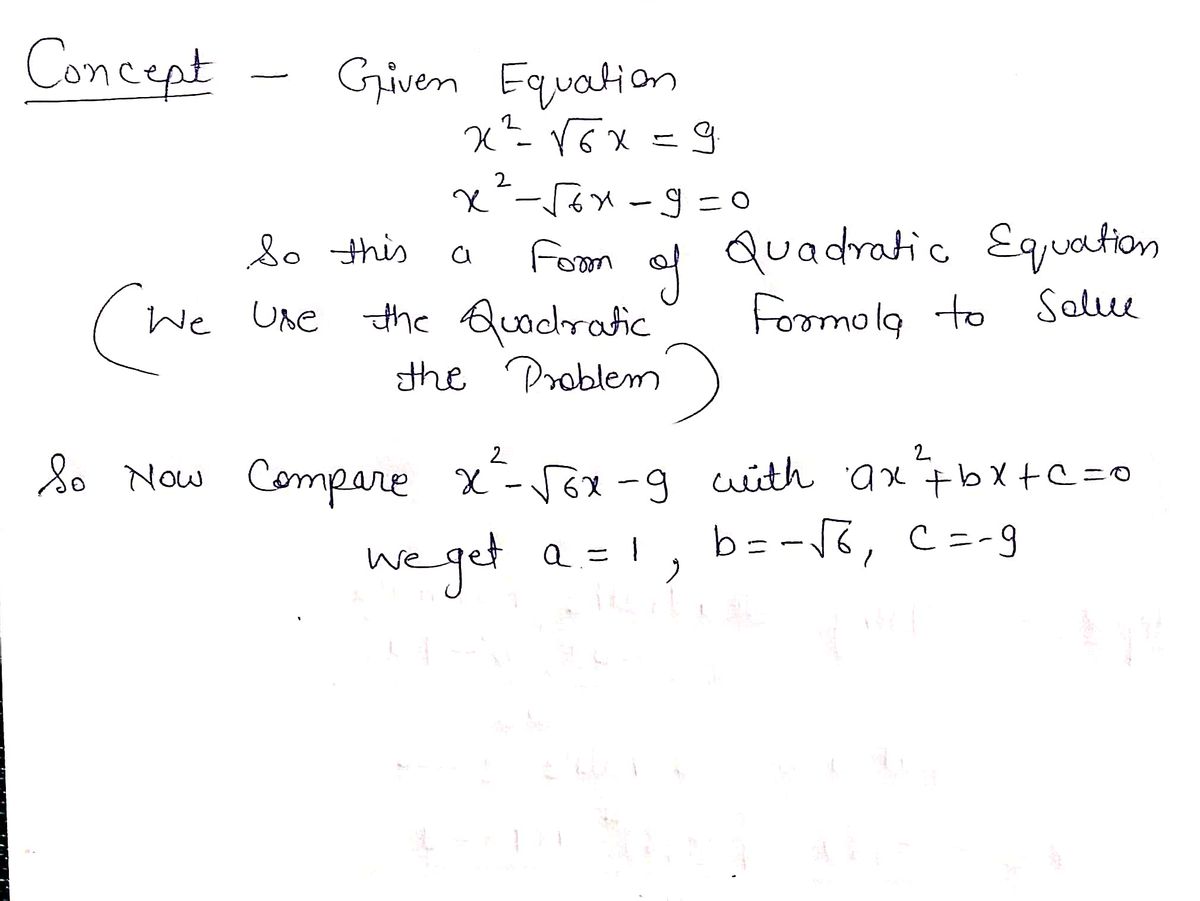 Concept - Given Equation
x² - √6 x = 9
x² - √6x - 9 = 0
So this a Form of Quadratic Equation
(We Use the Quadratic Formola to Solve
the Problem)
So Now Compare x² - √6x - 9 with ax² + bx + c = 0
we get a = 1, b = -√6, c = -9